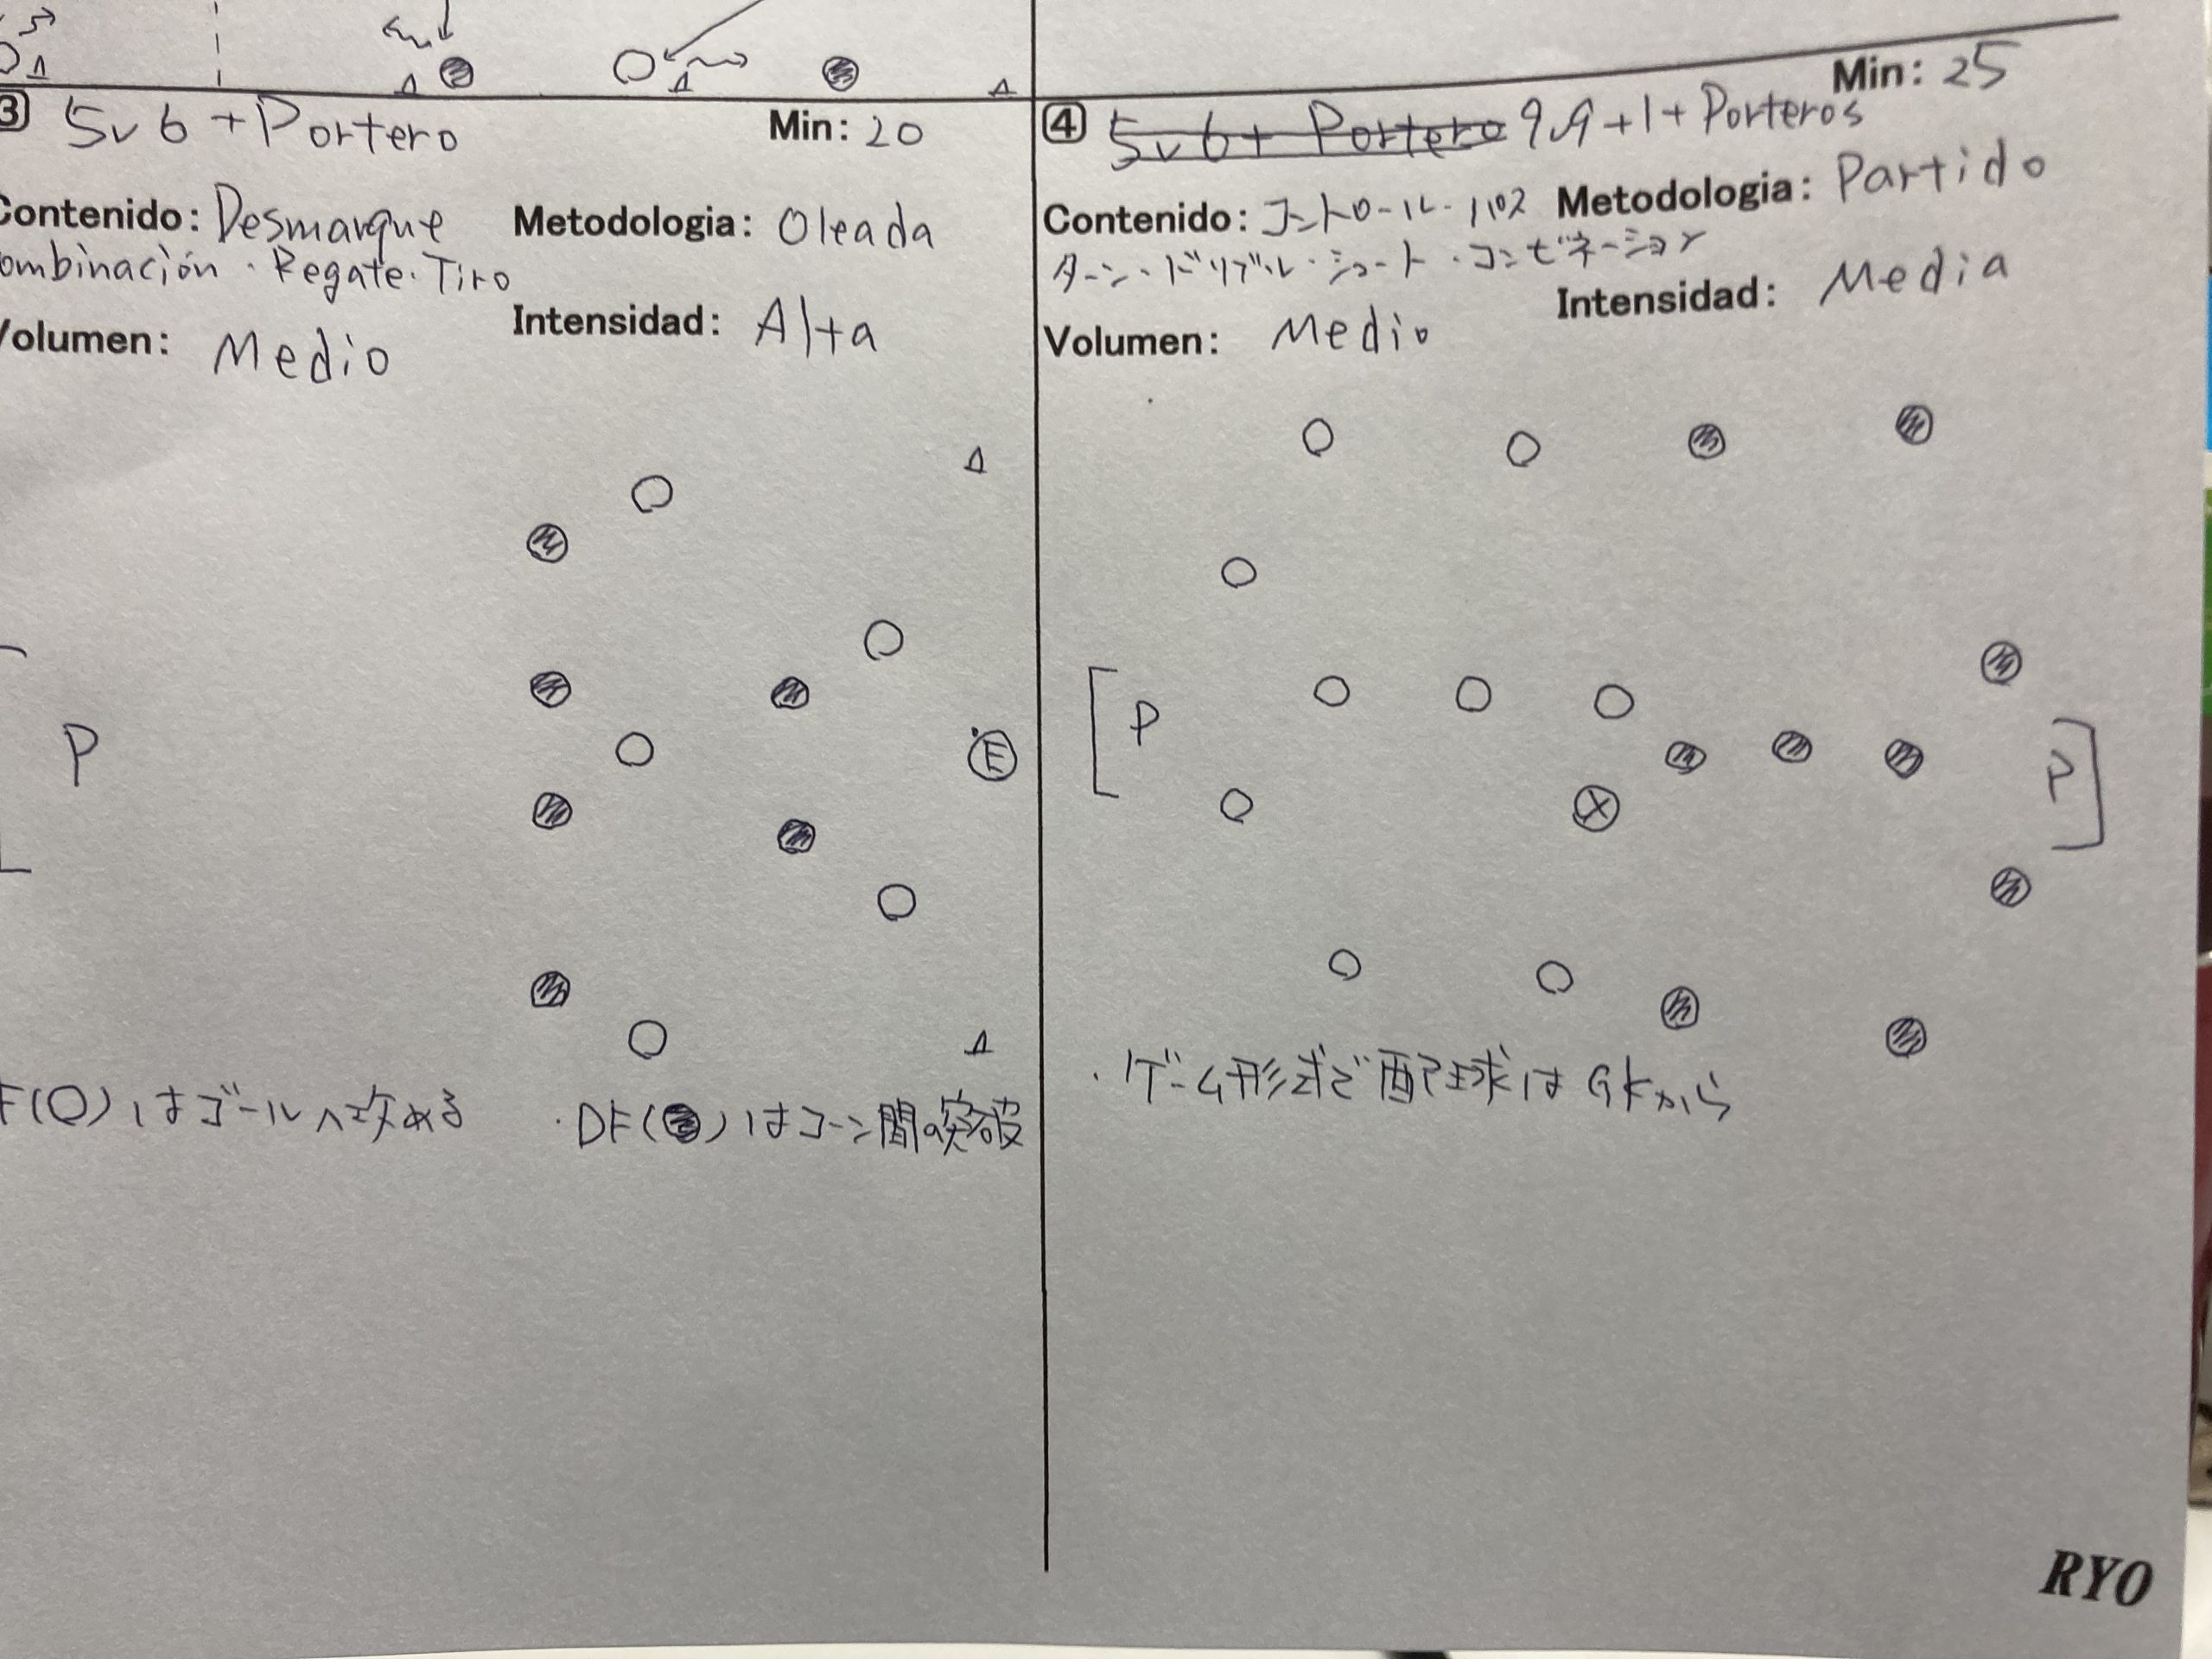 ③ 5v6+Portero
Min: 20
Contenido: Desmarque
ombinación・Regate・Tiro
Metodologia: Oleada
Volumen: Medio
Intensidad: Alta
P
E
F(○)はゴールへ攻める
・DF(●)はコーン間の突破
Min: 25
④ 5v6+ Portero 9v9+1+Porteros
Contenido: コントロール・パス
ターン・ドリブル・シュート・コンビネーション
Metodologia: Partido
Intensidad: Media
Volumen: Medio
P
P
・ゲーム形式で配球はGKから
RYO